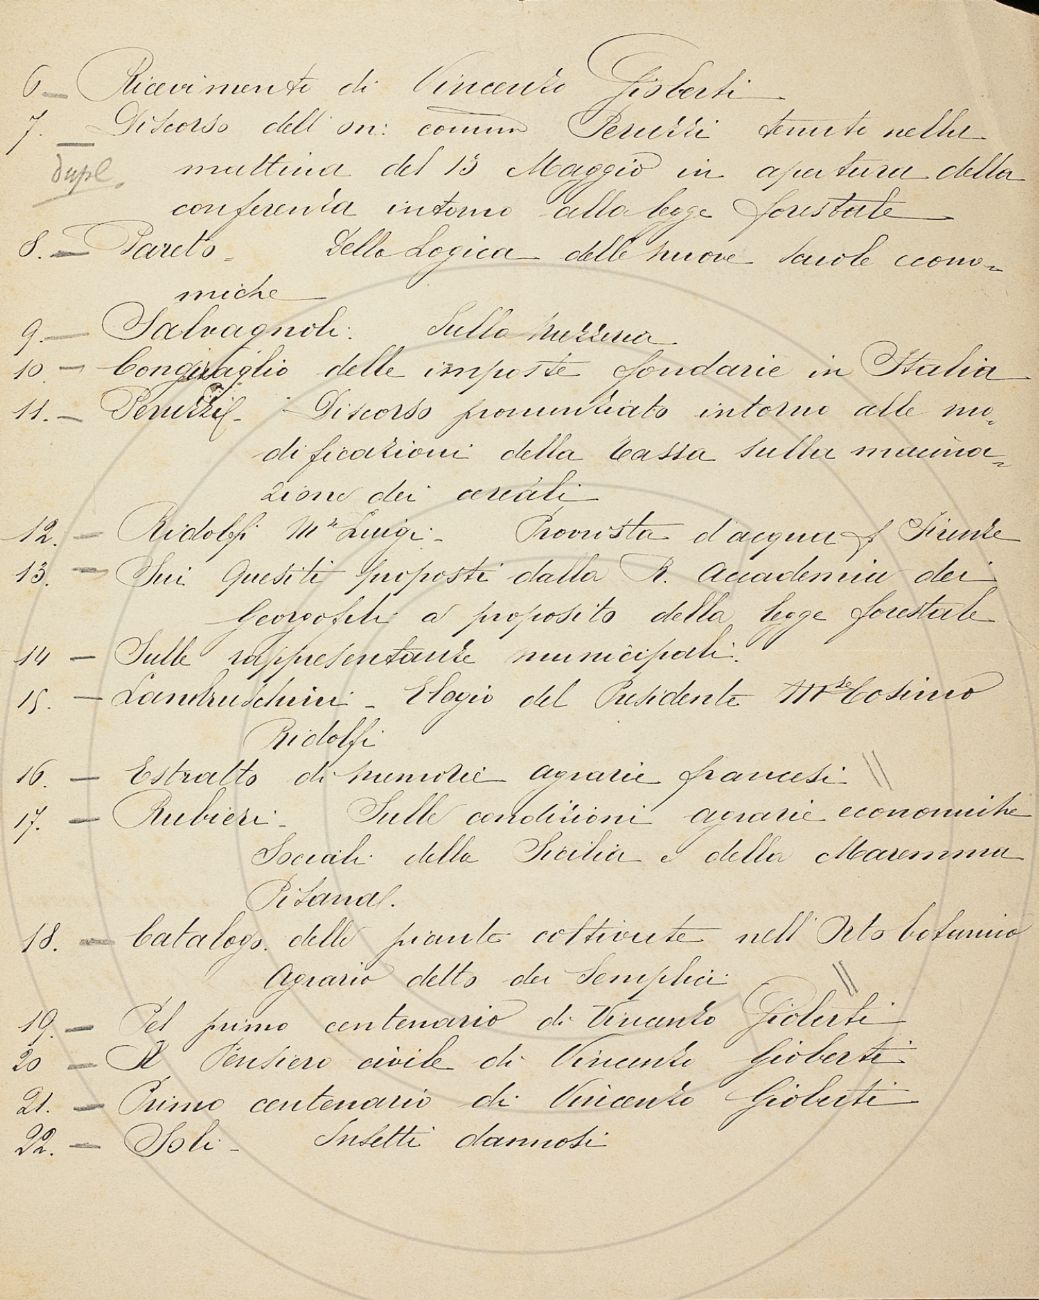 6 — Ricevimento di Vincenzo Gioberti
7. — Discorso dell' on: comm Peruzzi tenuto nella
dupl.
mattina del 13 Maggio in apertura della
conferenza intorno alla legge forestale
8. — Pareto - Della Logica delle nuove scuole econo=
miche
9 — Salvagnoli. Sulla
10 — Conguaglio delle imposte fondarie in Italia
11. — Peruzzi - Discorso pronunziato intorno alle mo=
dificazioni della tassa sulla macina=
zione dei cereali
12. — Ridolfi Mse Luigi - Provvista d'acqua Firenze
13. — Sui Quesiti proposti dalla R. Accademia dei
Georgofili a proposito della legge forestale
14 — Sulle rappresentanze municipali.
15. — Lambruschini - Elogio del Presidente Mse Cosimo
Ridolfi
16. — Estratto di memorie agrarie francesi //
17. — Rubieri - Sulle condizioni agrarie economiche
Sociali della Sicilia e della Maremma
Pisana.
18. — Catalogo delle piante coltivate nell' Orto botanico
Agrario detto dei Semplici //
19. — Pel primo centenario di Vincenzo Gioberti
20 — Il Pensiero civile di Vincenzo Gioberti
21. — Primo centenario di Vincenzo Gioberti
22. — Soli - Insetti dannosi